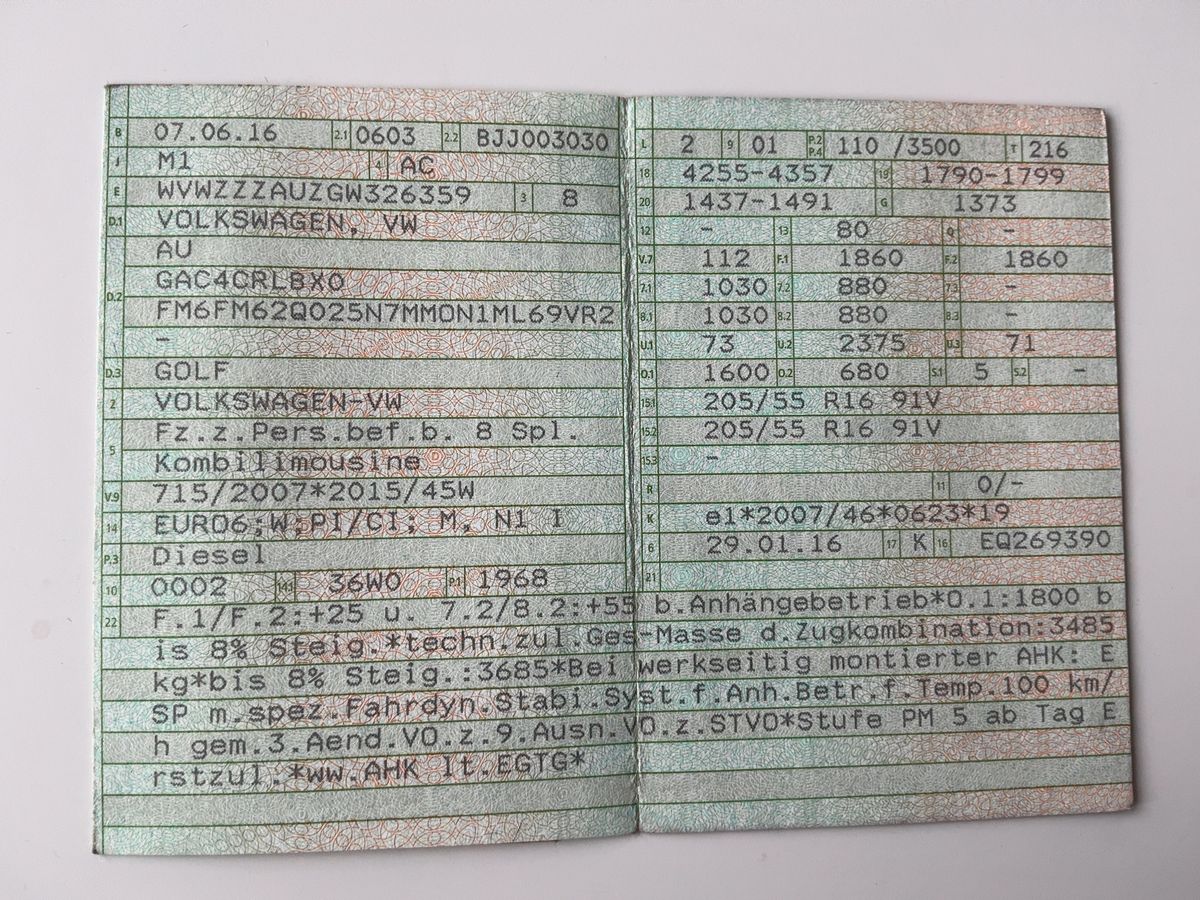 B 07.06.16 2.1 0603 2.2 BJJ003030
J M1 4 AC
E WVWZZZAUZGW326359 3 8
D.1 VOLKSWAGEN, VW
AU
D.2 GAC4CRLBX0
FM6FM62Q025N7MMON1ML69VR2
-
D.3 GOLF
2 VOLKSWAGEN-VW
5 Fz.z.Pers.bef.b. 8 Spl.
Kombilimousine
V.9 715/2007*2015/45W
14 EURO6;W;PI/CI; M, N1 I
P.3 Diesel
10 0002 14.1 36W0 P.1 1968
L 2 9 01 P.2 P.4 110 /3500 T 216
18 4255-4357 19 1790-1799
20 1437-1491 G 1373
12 - 13 80 Q -
V.7 112 F.1 1860 F.2 1860
7.1 1030 7.2 880 7.3 -
8.1 1030 8.2 880 8.3 -
U.1 73 U.2 2375 U.3 71
O.1 1600 O.2 680 S.1 5 S.2 -
15.1 205/55 R16 91V
15.2 205/55 R16 91V
15.3 -
R 11 0/-
K e1*2007/46*0623*19
6 29.01.16 17 K 16 EQ269390
21
22 F.1/F.2:+25 u. 7.2/8.2:+55 b.Anhängebetrieb*O.1:1800 b
is 8% Steig.*techn.zul.Ges-Masse d.Zugkombination:3485
kg*bis 8% Steig.:3685*Bei werkseitig montierter AHK: E
SP m.spez.Fahrdyn.Stabi.Syst.f.Anh.Betr.f.Temp.100 km/
h gem.3.Aend.VO.z.9.Ausn.VO.z.STVO*Stufe PM 5 ab Tag E
rstzul.*ww.AHK lt.EGTG*